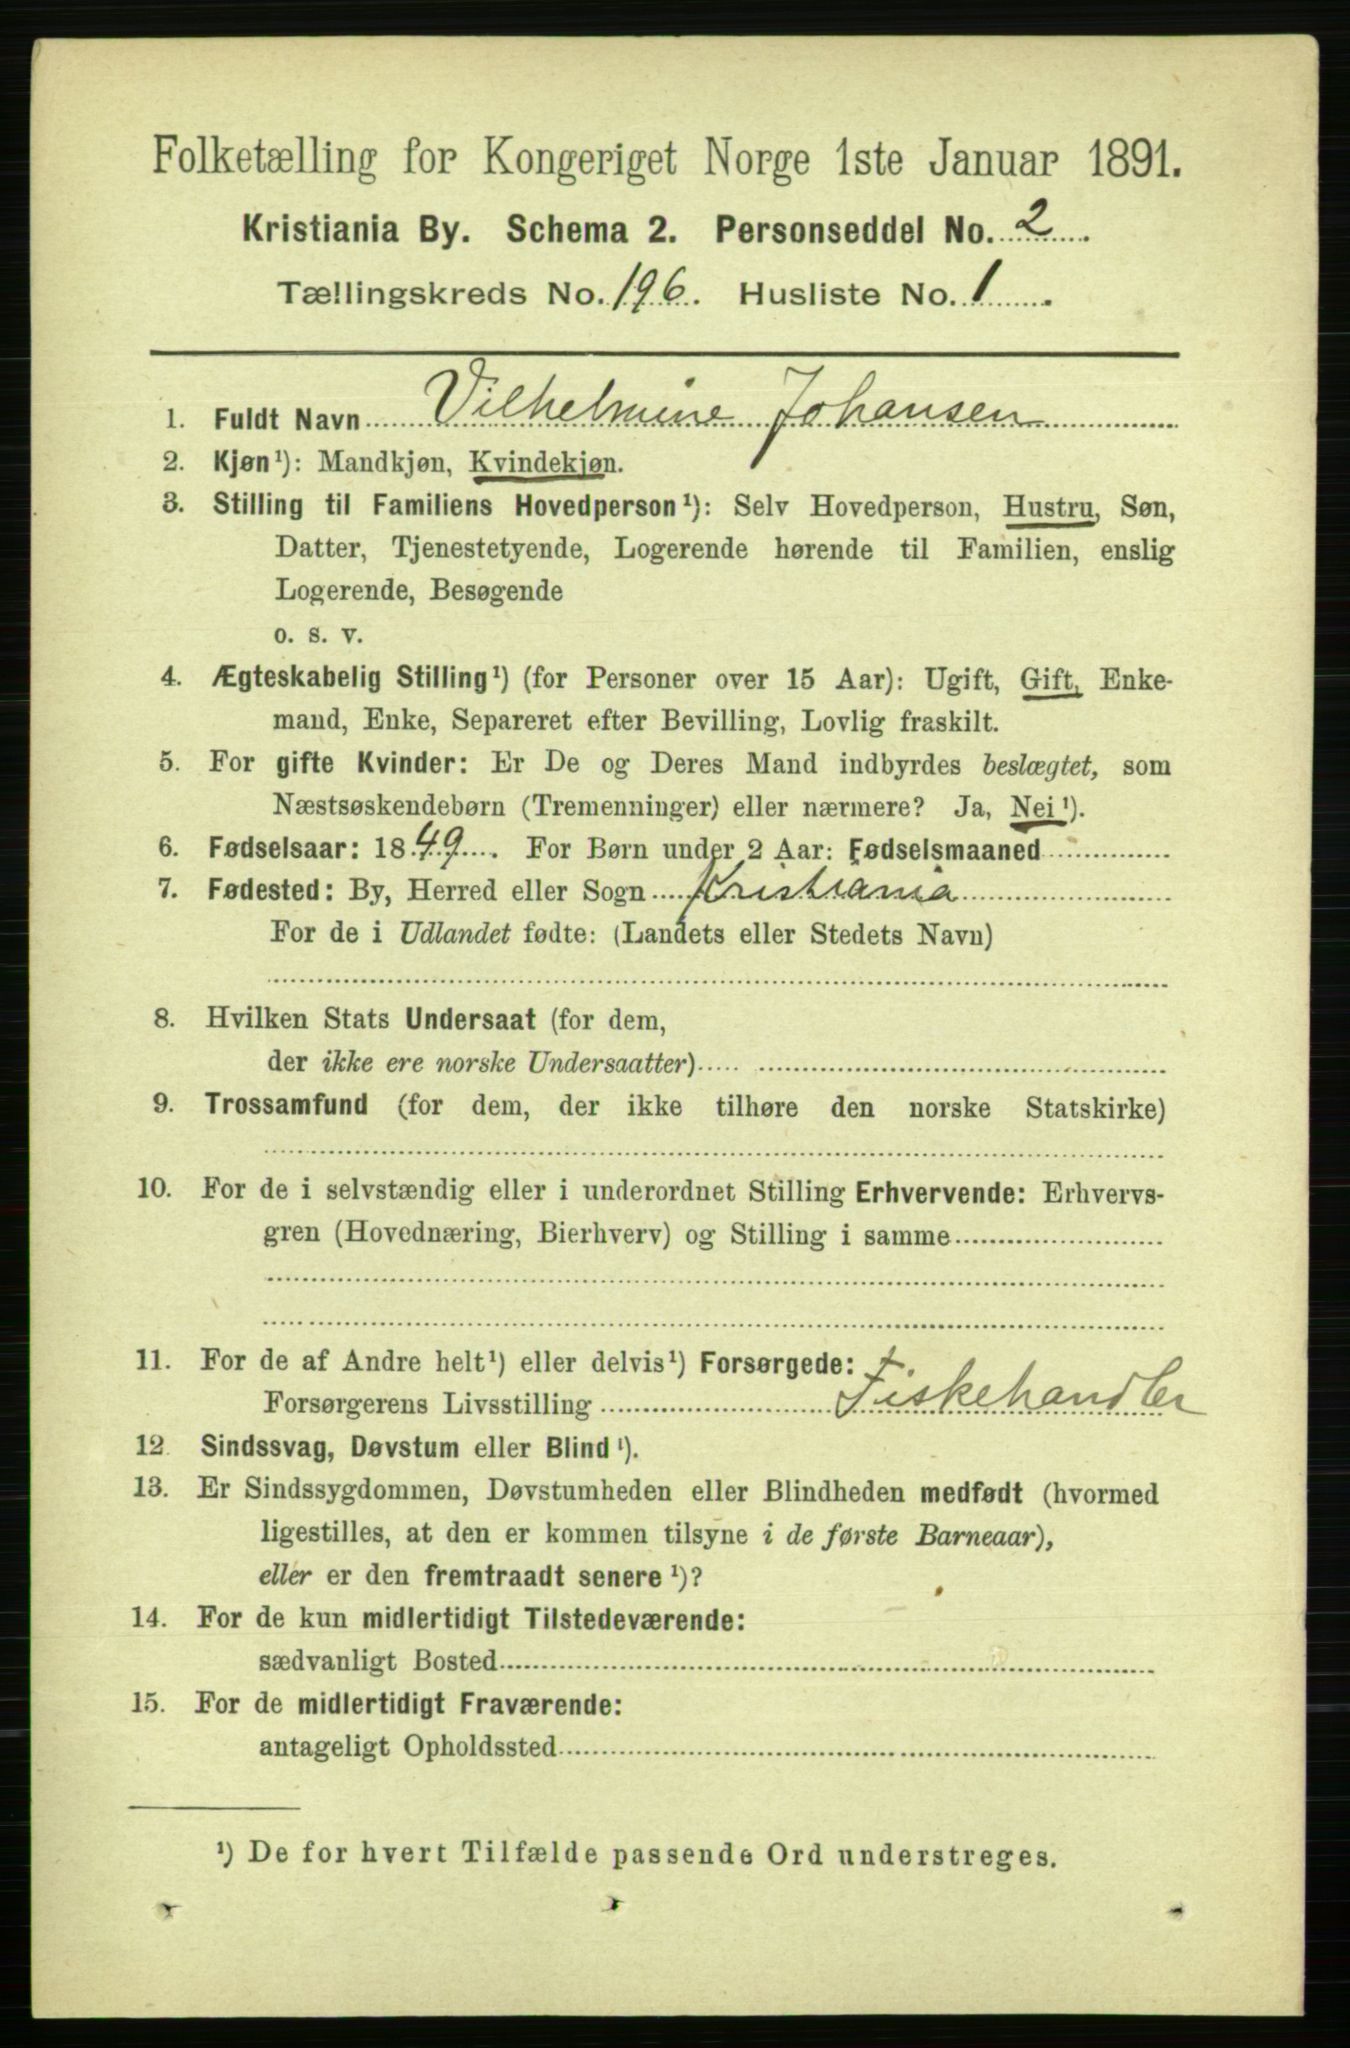 Folketælling for Kongeriget Norge 1ste Januar 1891.
Kristiania By. Schema 2. Personseddel No. 2.
Tællingskreds No. 196. Husliste No. 1.
1. Fuldt Navn Vilhelmine Johansen
2. Kjøn¹): Mandkjøn, Kvindekjøn.
3. Stilling til Familiens Hovedperson¹): Selv Hovedperson, Hustru, Søn,
Datter, Tjenestetyende, Logerende hørende til Familien, enslig
Logerende, Besøgende
o. s. v.
4. Ægteskabelig Stilling¹) (for Personer over 15 Aar): Ugift, Gift, Enke-
mand, Enke, Separeret efter Bevilling, Lovlig fraskilt.
5. For gifte Kvinder: Er De og Deres Mand indbyrdes beslægtet, som
Næstsøskendebørn (Tremenninger) eller nærmere? Ja, Nei¹).
6. Fødselsaar: 1849. For Børn under 2 Aar: Fødselsmaaned
7. Fødested: By, Herred eller Sogn Kristiania
For de i Udlandet fødte: (Landets eller Stedets Navn)
8. Hvilken Stats Undersaat (for dem,
der ikke ere norske Undersaatter)
9. Trossamfund (for dem, der ikke tilhøre den norske Statskirke)
10. For de i selvstændig eller i underordnet Stilling Erhvervende: Erhvervs-
gren (Hovednæring, Bierhverv) og Stilling i samme
11. For de af Andre helt¹) eller delvis¹) Forsørgede:
Forsørgerens Livsstilling Fiskehandler
12. Sindssvag, Døvstum eller Blind¹).
13. Er Sindssygdommen, Døvstumheden eller Blindheden medfødt (hvormed
ligestilles, at den er kommen tilsyne i de første Barneaar),
eller er den fremtraadt senere¹)?
14. For de kun midlertidigt Tilstedeværende:
sædvanligt Bosted
15. For de midlertidigt Fraværende:
antageligt Opholdssted
¹) De for hvert Tilfælde passende Ord understreges.